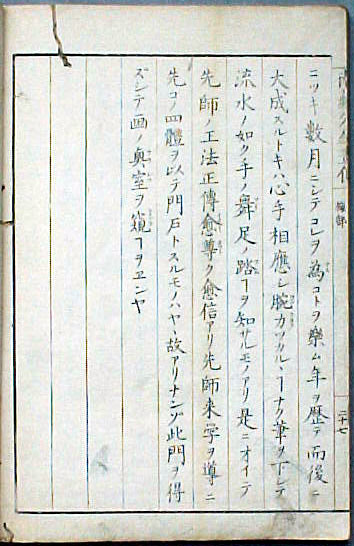 ニツキ數月ニシテコレヲ為コトヲ樂ム年ヲ歴テ而後ニ
大成スルトキハ心手相應シ腕カツカルヽヿナク筆ヲ下シテ
流水ノ如ク手ノ舞足ノ踏ヿヲ知サルモノアリ是ニオイテ
先師ノ工法正傳愈尊クノ愈信アリ先師来学ヲ導ニ
先コノ四體ヲ以テ門戸トスルモノハヤヽ故アリナンゾ此門ヲ得
ズシテ画ノ奥室ヲ窺ヿヲヱンヤ
二十七